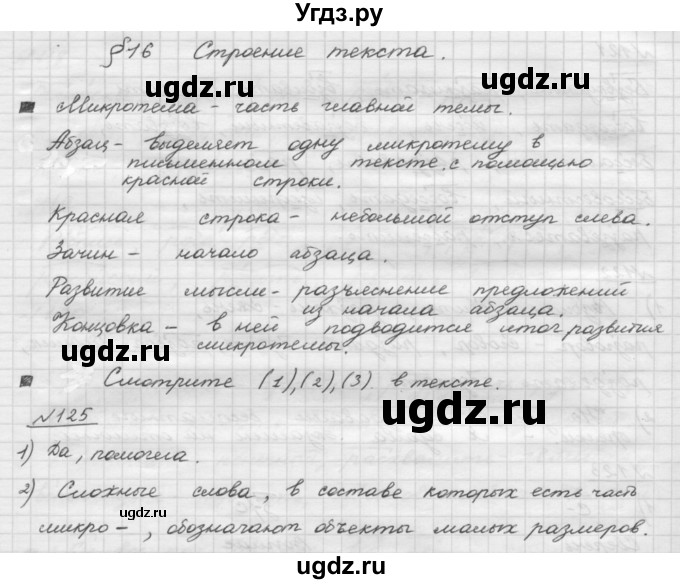 Угдз.ру
§16 Строение текста.
Микротема - часть главной темы.
Абзац - выделяет одну микротему в
письменном тексте с помощью
красной строки.
Красная строка - небольшой отступ слева.
Зачин - начало абзаца.
Развитие мысли - разъяснение предложений
из начала абзаца.
Концовка - в ней подводится итог развития
микротемы.
Смотрите (1), (2), (3) в тексте.
№125
1) Да, помогла.
2) Сложные слова, в составе которых есть часть
микро-, обозначают объекты малых размеров.
ugdz.ru
ugdz.ru
ugdz.ru
ugdz.ru
ugdz.ru
ugdz.ru
ugdz.ru
ugdz.ru
ugdz.ru